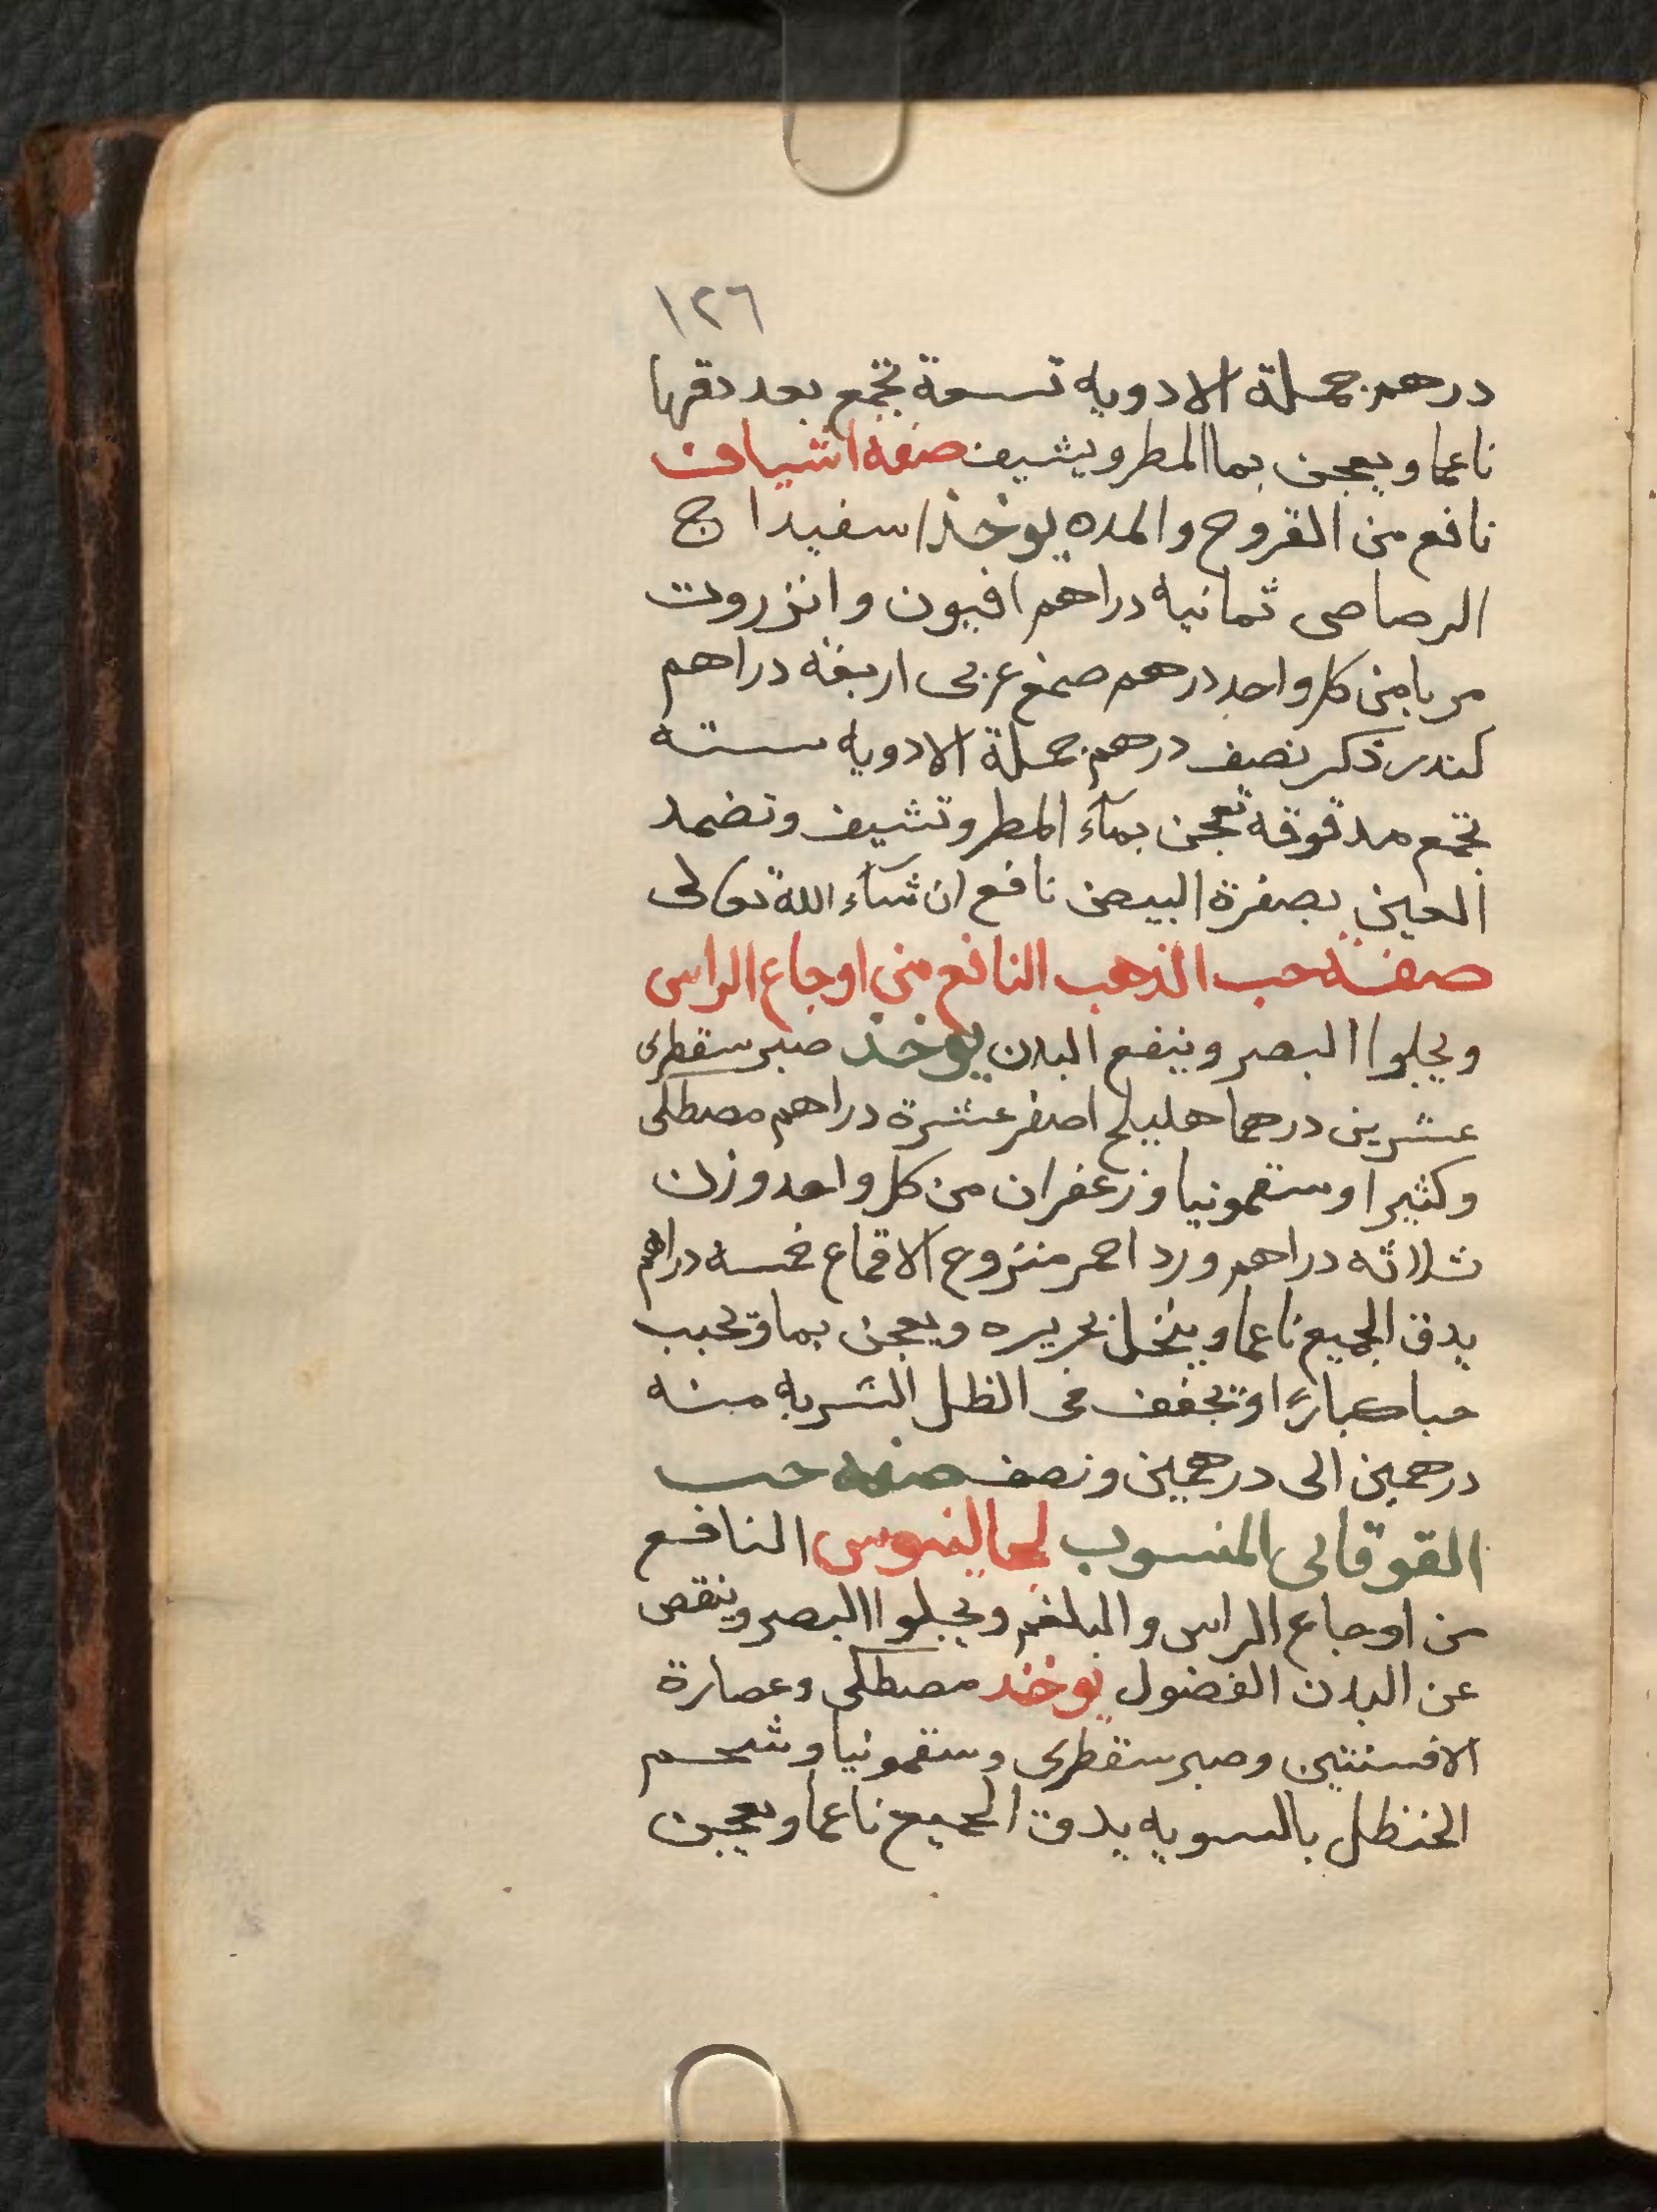 ١٢٦
درهم جملة الادويه تسعة تجمع بعد دقها
ناعما ويعجن بما المطر ويشيف صفة اشياف
نافع من القروح والمده يوخذ اسفيداج
الرصاصى ثمانيه دراهم افيون وانزروت
مربا من كل واحد درهم صمغ عربى اربعة دراهم
كندر ذكر نصف درهم جملة الادويه سته
تجمع مدقوقه تعجن بمآء المطر وتشيف وتضمد
العين بصفرة البيض نافع ان شآء الله تعالى
صفة حب الذهب النافع من اوجاع الراس
ويجلوا البصر وينفع البدن يوخذ صبر سقطرى
عشرين درهما هليلج اصفر عشرة دراهم مصطكى
وكثيرا وسقمونيا وزعفران من كل واحد وزن
ثلاثه دراهم ورد احمر منزوع الاقماع خمسه دراهم
يدق الجميع ناعما وينخل بحريره ويعجن بما وتحبب
حبا كبارًا وتجفف فى الظل الشربه منه
درهمين الى درهمين ونصف صفه حب
القوقاى المنسوب لجالينوس النافع
من اوجاع الراس والبلغم ويجلوا البصر وينقص
عن البدن الفضول يوخذ مصطكى وعصارة
الافسنتين وصبر سقطرى وسقمونيا وشحم
الحنظل بالسويه يدق الجميع ناعما ويعجن